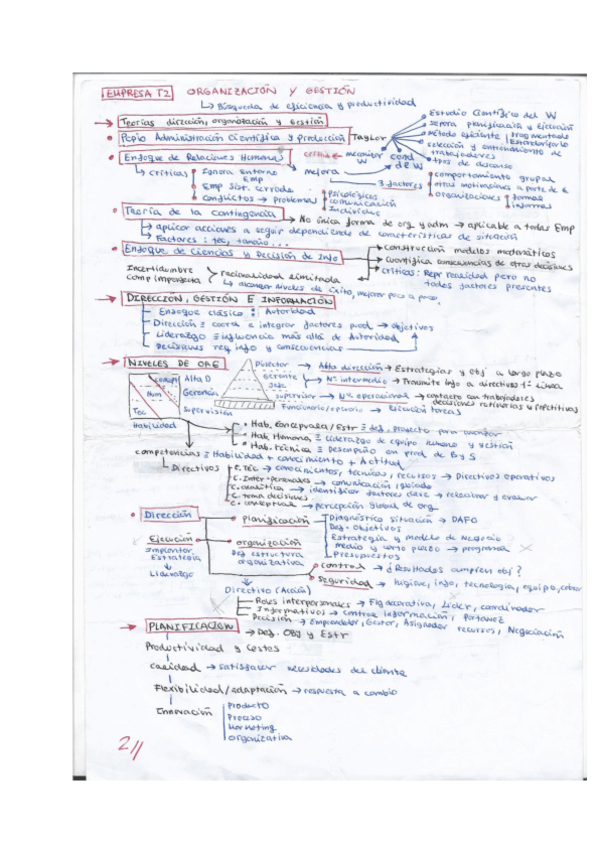 EMPRESA T2 ORGANIZACIÓN Y GESTIÓN
↳ Búsqueda de eficiencia y productividad
→ Teorías dirección, organización y Gestión
• Pcpio Administración Científica y Producción Taylor
Estudio Científico del W
separa planificación y Ejecución
método eficiente
selección y entrenamiento de trabajadores
de descanso
• Enfoque de Relaciones Humanas
critica → W
cond de W
mejora
3 factores
→ críticas
Ignora entorno Emp
Emp sist. cerrado
Conflictos → problemas
Psicológicos
comunicación
Individuo
comportamiento grupal
otras motivaciones a parte de €
organizaciones
formas
informas
• Teoría de la Contingencia → No única forma de org y adm → aplicable a todas Emp
→ aplicar acciones a seguir dependiendo de características de situación
→ Factores: tec, tamaño...
• Enfoque de Ciencias y Decisión de Info
construcción modelos matemáticos
cuantifica consecuencias de otras decisiones
críticas: Repr realidad pero no todos factores presentes
Incertidumbre
comp
racionalidad limitada
↳ alcanzar niveles de éxito, mejorar poco a poco.
→ DIRECCIÓN, GESTIÓN E INFORMACIÓN
Enfoque clásico: Autoridad
Dirección ≡ coord e integrar factores prod → objetivos
Liderazgo ≡ influencia más allá de Autoridad
Decisiones req info y consecuencias
→ NIVELES DE ORG
Director → Alta dirección → Estrategias y obj a largo plazo
Gerente Jefe → Nº intermedio → Transmite info a directivos 1ª línea
Supervisor → Nº operacional → contacto con trabajadores
decisiones rutinarias y repetitivas
Funcionario/operario → ejecución tareas
Concept
Hum
Tec
Alta D
Gerencia
Supervisión
Habilidad
• Hab. Conceptuales/Estr ≡ def. proyecto para
• Hab. Humana ≡ Liderazgo de equipo humano y gestión
• Hab. técnica ≡ Desempeño en prod de B y S
competencias ≡ Habilidad + conocimiento + Actitud
↳ Directivos
C. TEC → conocimientos, técnicas, recursos → Directivos operativos
C. Inter-personales → comunicación
C. analítica → identificar factores clave → relacionar y evaluar
C. toma decisiones
C. conceptual → percepción global de org
• Dirección
Planificación
Diagnóstico situación → DAFO
Def. objetivos
Estrategia y modelo de negocio
medio y corto plazo → programa
Presupuestos
Ejecución
Implantar Estrategia
↳ Liderazgo
organización
Def estructura organizativa
control → ¿Resultados cumplen obj?
Seguridad → higiene, info, tecnología, equipo, cobrar
Directivo (Acción)
Roles interpersonales → Fig decorativa, Líder, coordinador
Informativos → controla información, Portavoz
Decisión → Emprendedor, Gestor, Asignador recursos, Negociación
→ PLANIFICACIÓN → Def. OBJ y Estr
Productividad y Costes
calidad → satisfacer necesidades del cliente
Flexibilidad/adaptación → respuesta a cambio
Innovación
Producto
Proceso
Marketing
organizativa
2//